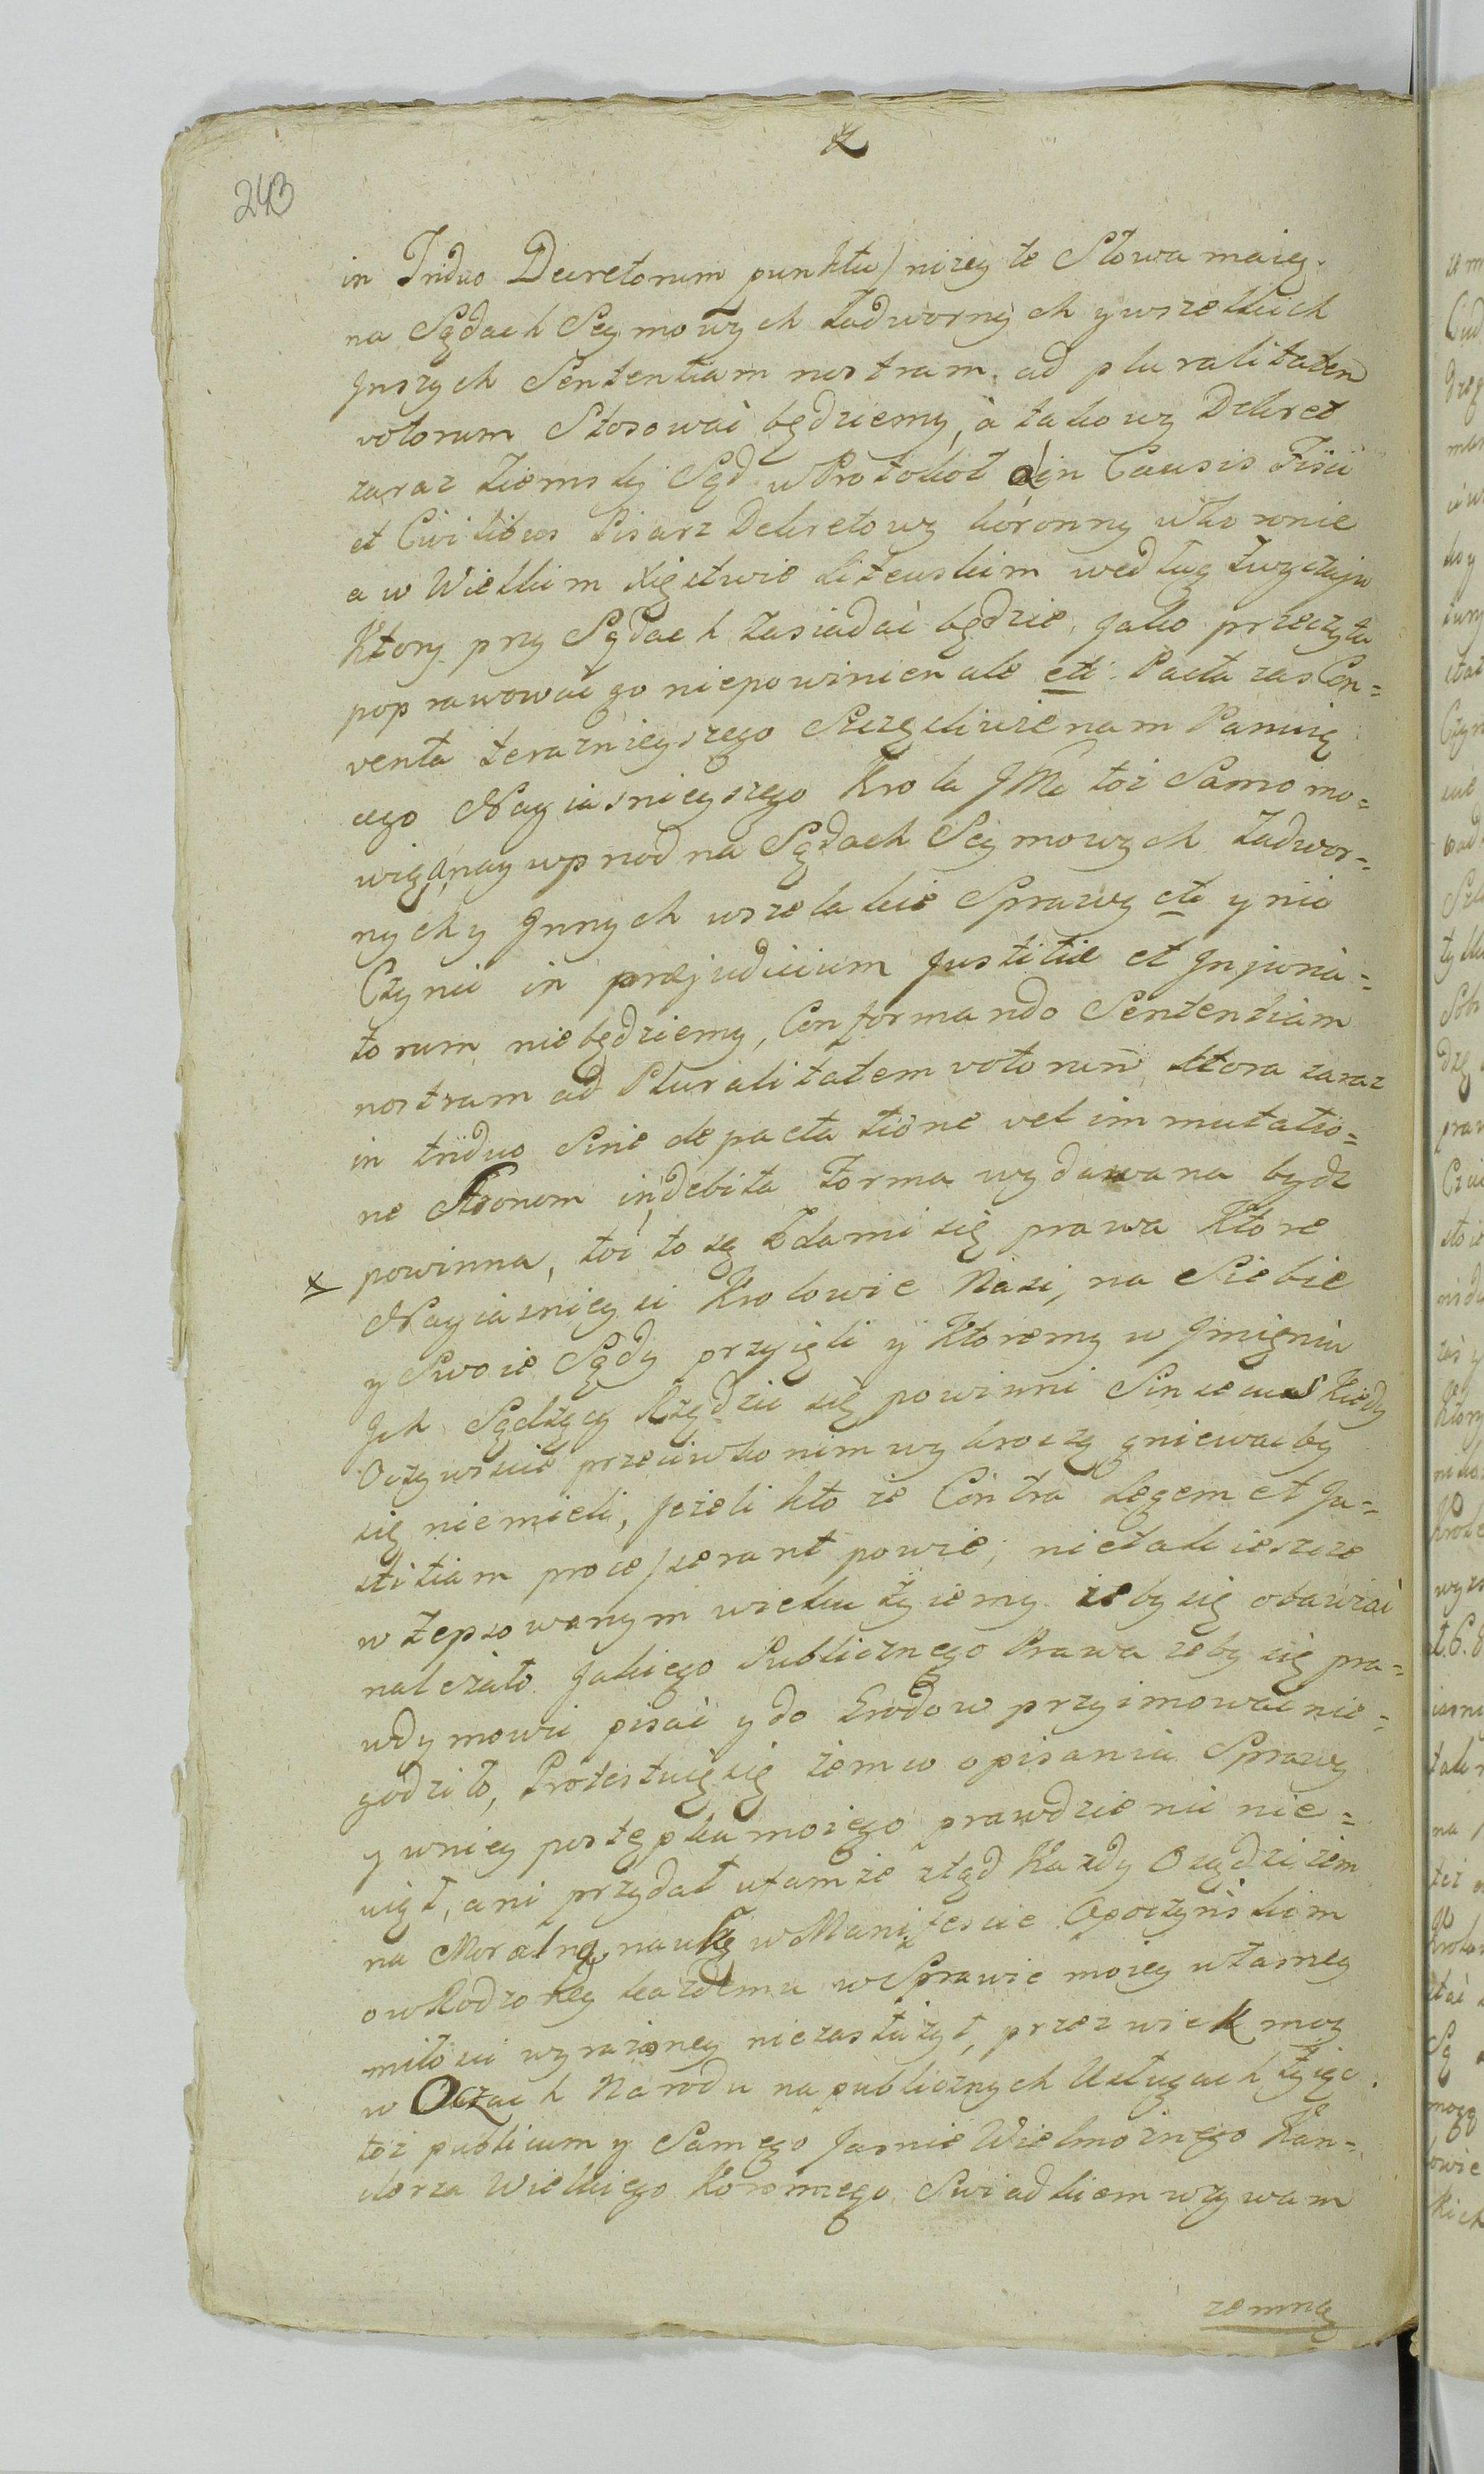 243
in Triduo Decretorum punktu) niżey te Słowa maią.
na Sądach Seymowych Zadwornych y wszelkich
Jnszych Sententiam nostram ad pluralitatem
votorum Stosować będziemy, à takowy Dekret
zaraz Ziemski Sąd w Protokoł in Causis Fisci
et Civilibus Pisarz Dekretowy koronny w koronie
a w Wielkim Xięstwie Litewskim według zwyczaju
Ktory przy Sądach zasiadać będzie, jako przeczyta
poprawować go niepowinien ale ett: Pacta zas Con=
venta teraznieyszego Szczęsliwie nam Panuią
cego Nayiasnieyszego Krola JMci toż Samo mo=
wią, naywprzod na Sądach Seymowych Zadwor=
nych y Jnnych wszelakie Sprawy etc y nic
Czynic in præjudicium Justitiæ et Jnjuria=
torum niebędziemy, Conformando Sententiam
nostram ad Pluralitatem votorum ktora zaraz
in triduo Sine depactatione vel immutatio=
ne Stronom in debita Forma wydawana bydz
powinna, toć to są zdami się prawa Ktore
Nayiasnieysi Krolowie Nasi, na Siebie
y Swoie Sądy przyięli y Ktoremy w Jmieniu
Jch Sądzący Rządzić się powinni Sincerius Kiedy
Oczywiscie przeciwko nim wykroczą gniewać by
się niemieli, jeżeli kto że Contra Legem et Ju=
stitiam processerant powie; nietak ieszcze
w Zepsowanym wieku żyiemy żeby się obawiać
należało jakiego Publicznego Prawa żeby się pra=
wdy mowić pisać y do Grodow przyimować nie=
godziło, Protestuię się żem w opisaniu Sprawy
y wniey postępku moiego prawdzie nic nie=
uiął, ani przydał ufam że ztąd Kazdy Osądzi żem
na Moralną naukę w Manifescie Opoczyńskim
o wRodzoney kazdemu w Sprawie moiey własney
miłosci wyrażoney niezasłużył, przez wiek moy
w Oczach Narodu na publicznych Usługach żyiąc.
też publicum y Samego Jasnie Wielmożnego Kan=
clerza Wielkiego Koronnego Swiadkiem wzywam
zemną